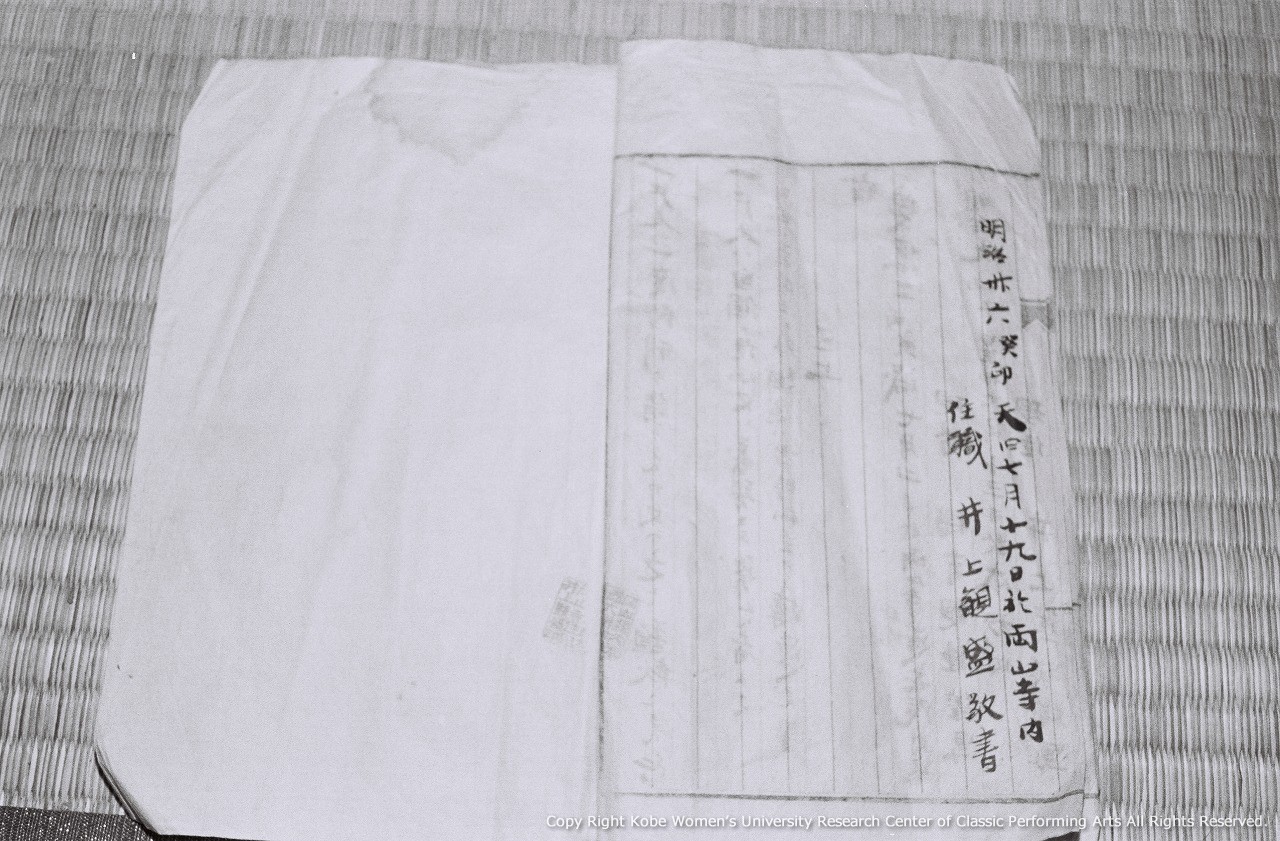 明治卅六癸卯天旧七月十九日於両山寺内
住職 井上観盛敬書
Copy Right Kobe Women's University Research Center of Classic Performing Arts All Rights Reserved.